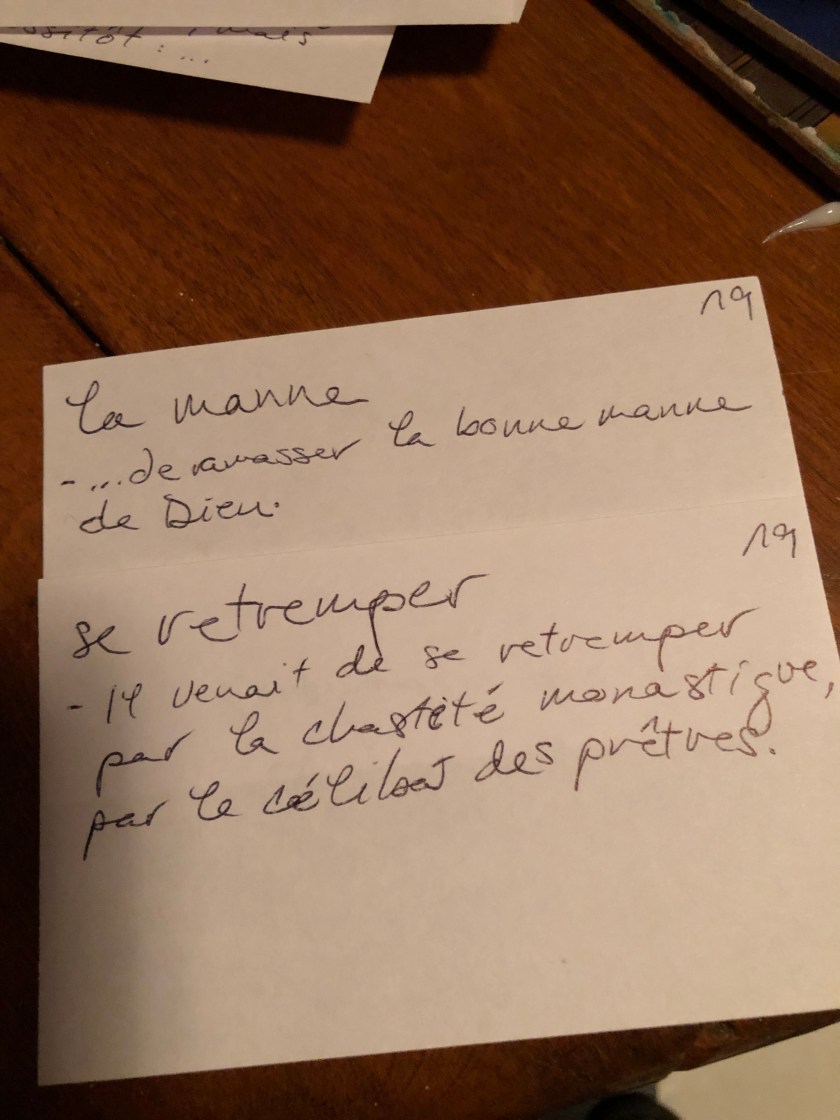 mais
: ...
19
la manne
- ... de ramasser la bonne manne
de Dieu.
19
se retremper
- Il venait de se retremper
par la chasteté monastique,
par le célibat des prêtres.